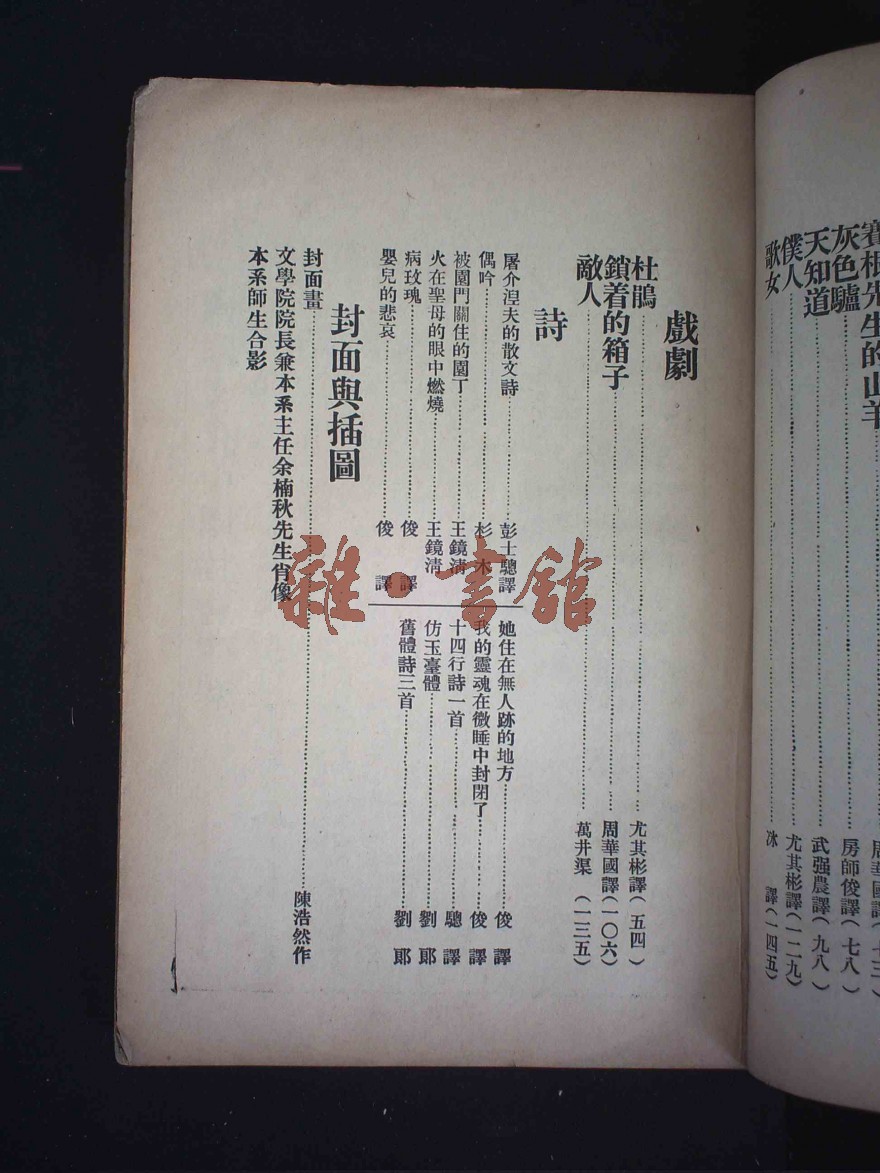 賽根先生的山羊
周華國譯(十三)
灰色驢 房師俊譯(七八)
天知道 武强農譯(九八)
僕人 尤其彬譯(一二九)
歌女 冰 譯(一四五)
戲劇
杜鵑 尤其彬譯(五四)
鎖着的箱子 周華國譯(一〇六)
敵人 萬井渠 (一三五)
詩
屠介湼夫的散文詩 彭士驄譯
偶吟 杉木
被園門關住的園丁 王鏡清
火在聖母的眼中燃燒 王鏡清
病玫瑰 俊 譯
嬰兒的悲哀 俊 譯
她住在無人跡的地方 俊 譯
我的靈魂在微睡中封閉了 俊 譯
十四行詩一首 驄 譯
仿玉臺體 劉 郎
舊體詩三首 劉 郎
封面與插圖
封面畫 陳浩然作
文學院院長兼本系主任余楠秋先生肖像
本系師生合影
雜·書館